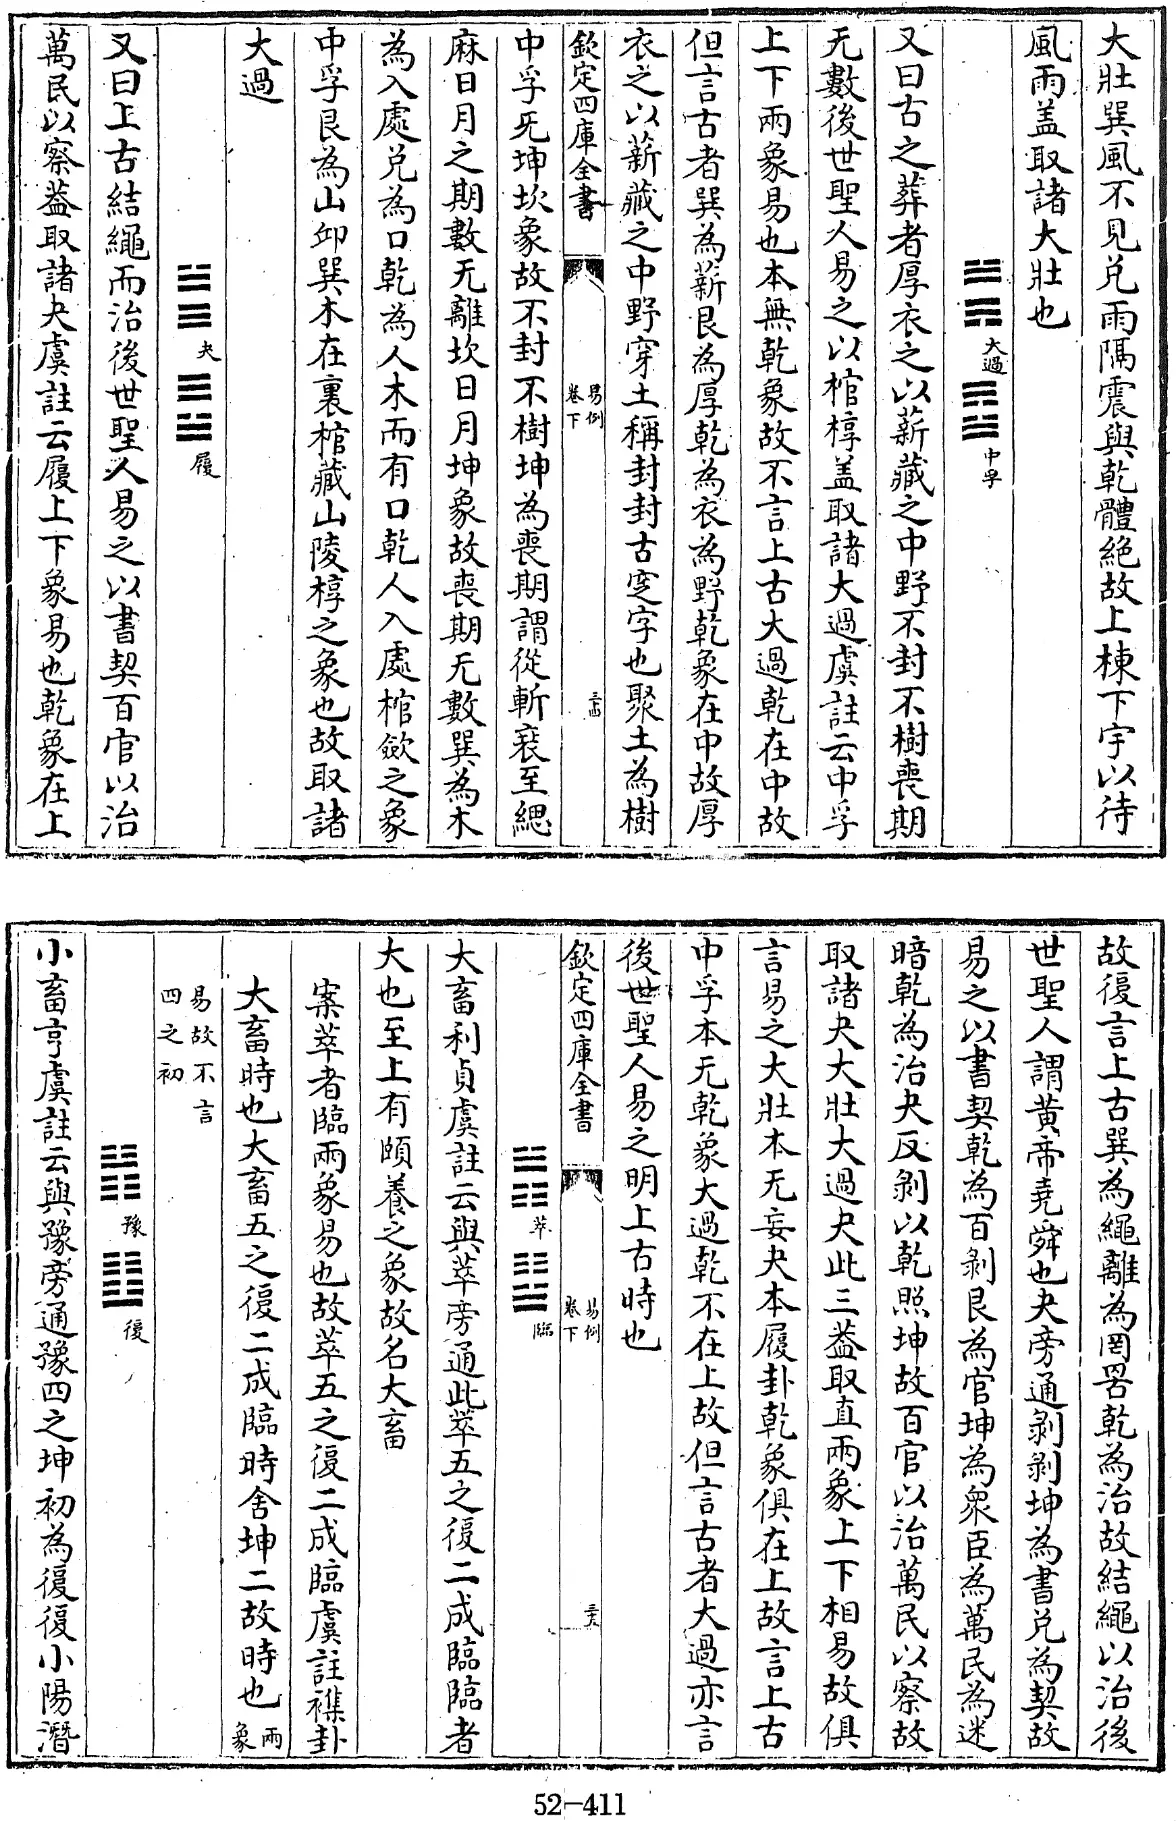 大壯巽風不見兌雨隔震與乾體絕故上棟下宇以待
風雨蓋取諸大壯也
大過
中孚
又曰古之葬者厚衣之以薪藏之中野不封不樹喪期
无數後世聖人易之以棺椁蓋取諸大過虞註云中孚
上下兩象易也本無乾象故不言上古大過乾在中故
但言古者巽為薪艮為厚乾為衣為野乾象在中故厚
衣之以薪藏之中野穿土稱封封古窆字也聚土為樹
欽定四庫全書
易例
卷下
中孚无坤坎象故不封不樹坤為喪期謂從斬衰至緦
麻日月之期數无離坎日月坤象故喪期无數巽為木
為入處兌為口乾為人木而有口乾人入處棺歛之象
中孚艮為山丘巽木在裏棺藏山陵椁之象也故取諸
大過
夬
履
又曰上古結繩而治後世聖人易之以書契百官以治
萬民以察蓋取諸夬虞註云履上下象易也乾象在上
故復言上古巽為繩離為罔罟乾為治故結繩以治後
世聖人謂黄帝堯舜也夬旁通剥剥坤為書兌為契故
易之以書契乾為百剥艮為官坤為衆臣為萬民為迷
暗乾為治夬反剥以乾照坤故百官以治萬民以察故
取諸夬大壯大過夬此三蓋取直兩象上下相易故俱
言易之大壯本无妄夬本履卦乾象俱在上故言上古
中孚本无乾象大過乾不在上故但言古者大過亦言
後世聖人易之明上古時也
欽定四庫全書
易例
卷下
萃
臨
大畜利貞虞註云與萃旁通此萃五之復二成臨臨者
大也至上有頤養之象故名大畜
案萃者臨兩象易也故萃五之復二成臨虞註襍卦
大畜時也大畜五之復二成臨時舍坤二故時也兩象
易故不言
四之初
豫
復
小畜亨虞註云與豫旁通豫四之坤初為復復小陽潛
52-411